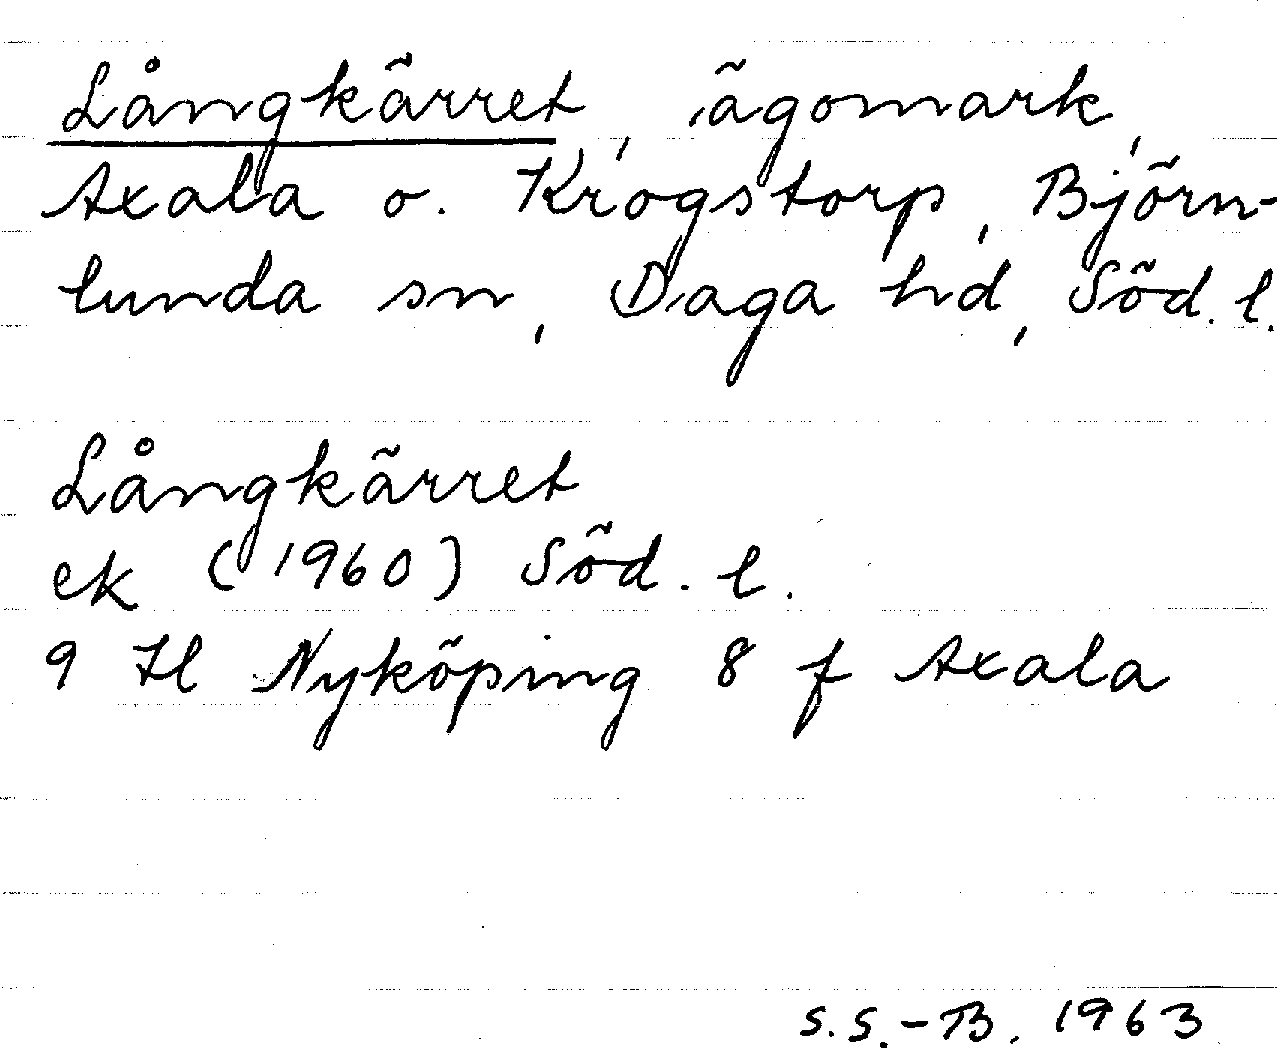 Långkärret, ägomark,
Axala o. Krogstorp, Björn-
lunda sn, Daga hd, Söd. l.
Långkärret
ek (1960) Söd. l.
9 Hl Nyköping 8 f Axala
S.S.-B. 1963